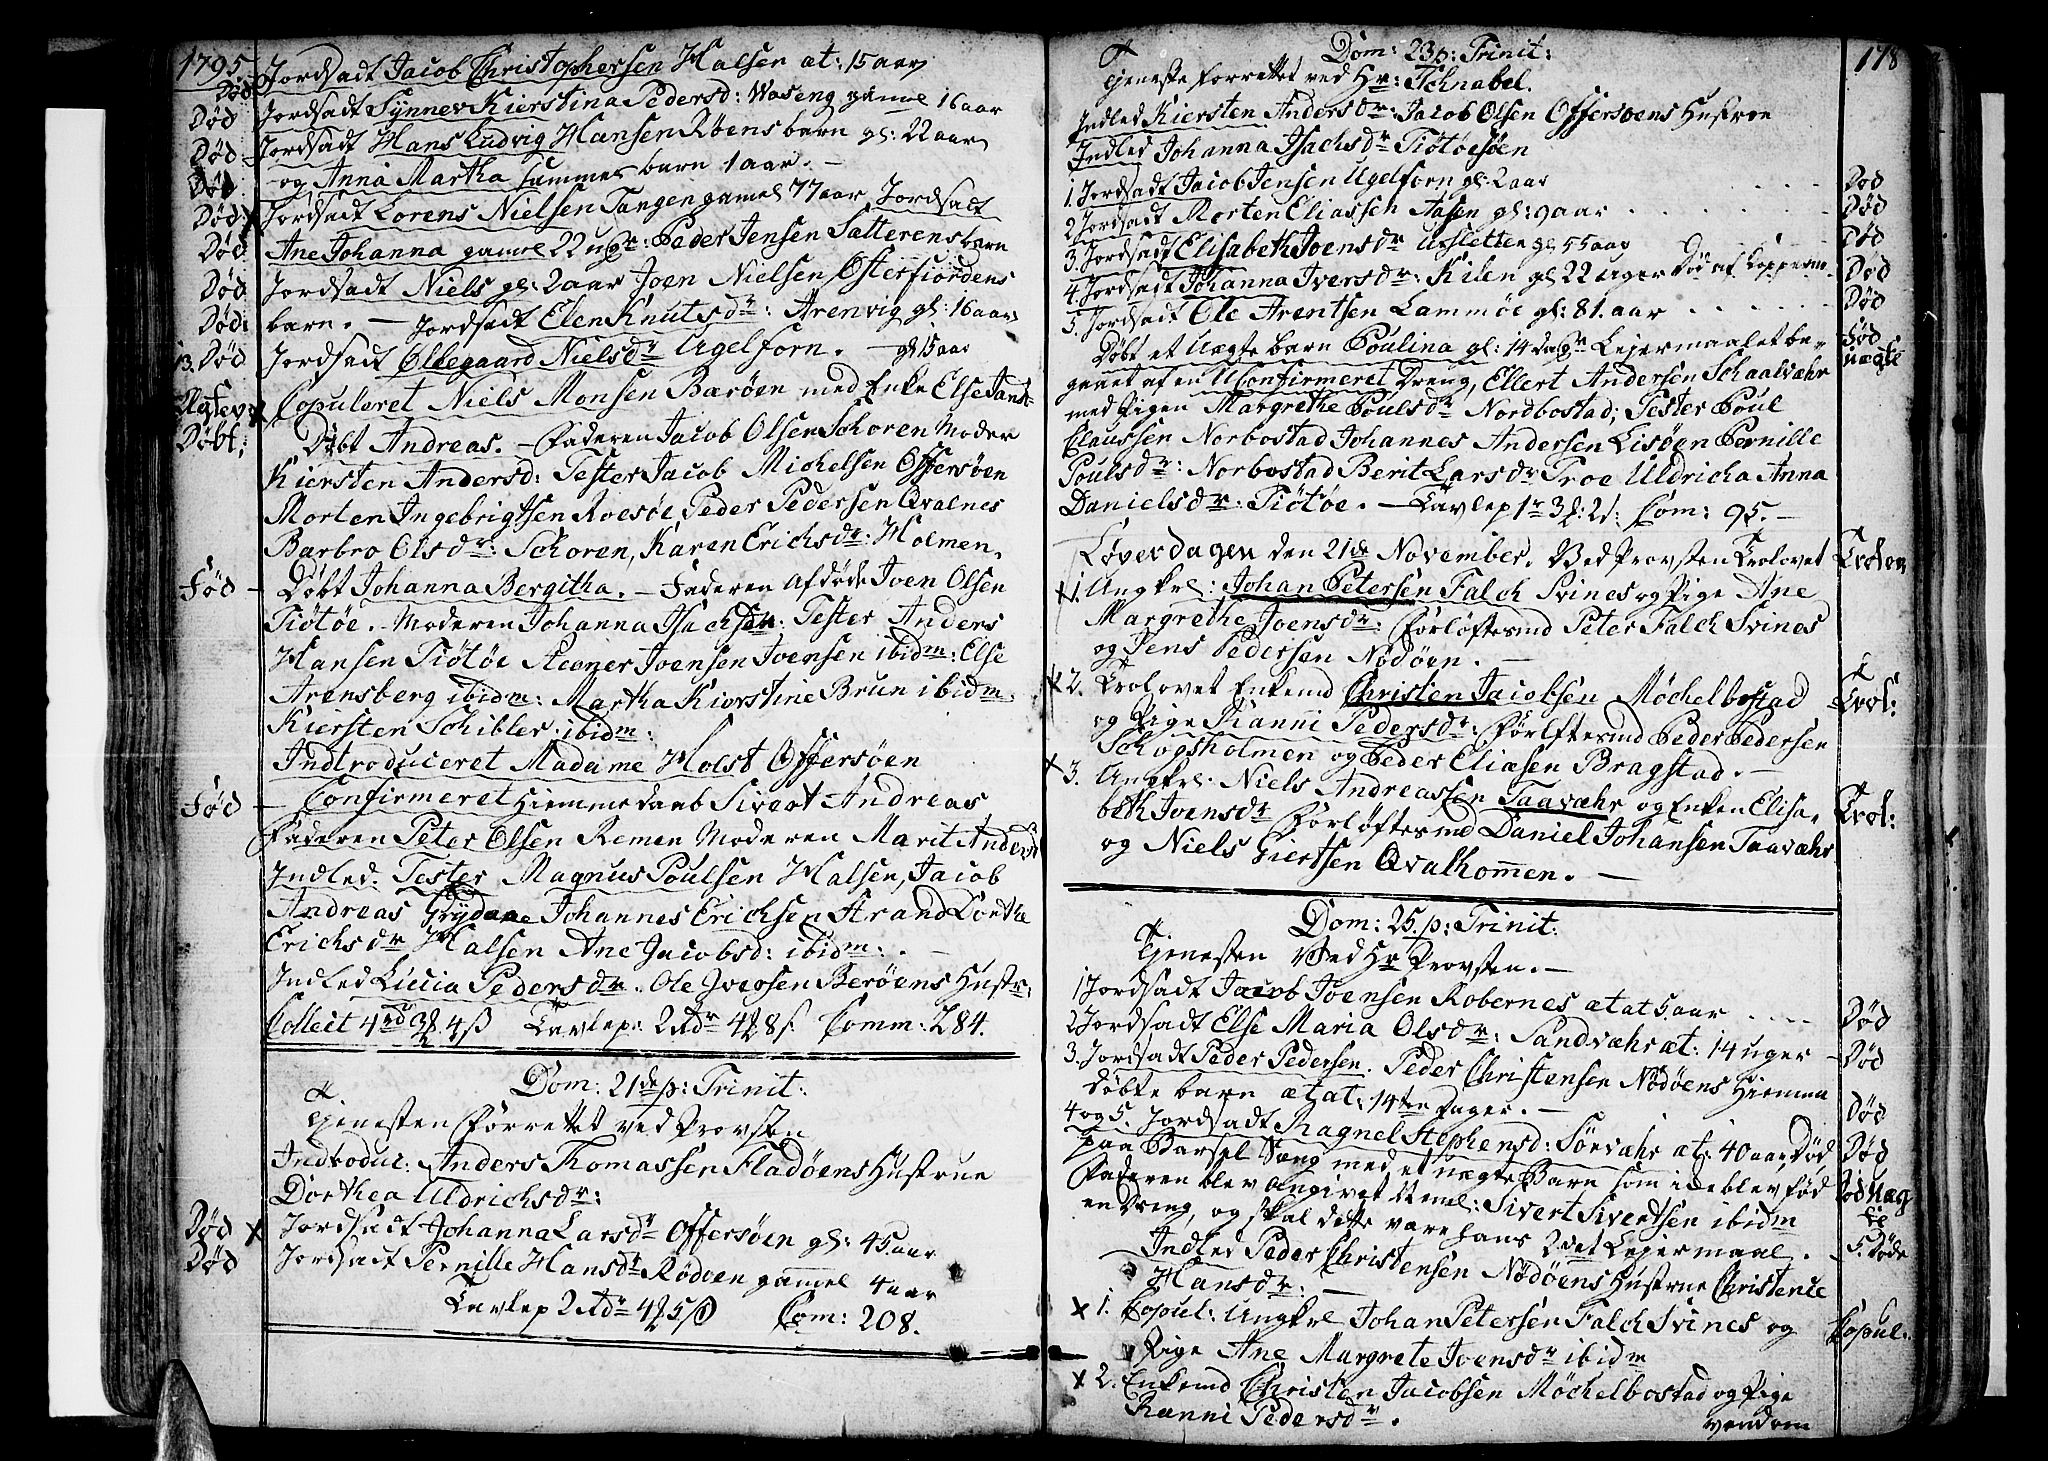 1795.
Død Jordsadt Jacob Christophersen Halsen æt: 15 aar
Død Jordsadt Synnev Kierstina Pedersd: Waseng gamel 16 aar
Død Jordsadt Hans Ludvig Hansen Røens barn gl: 22 aar
Død og Anna Martha sammes barn 1 aar. -
Død Jordsadt Lorens Nielsen Tangen gamel 77 aar Jordsadt
Død Ane Johanna gamel 22 ugr: Peder Jensen Satterens barn
Død Jordsadt Niels gl: 2 aar Joen Nielsen Østerfiordens
Død: barn. - Jordsadt Elen Knutsdr: Arenvig gl: 16 aar
13. Død Jordsadt Ollegaard Nielsdr Ugelforn. - gl 15 aar
Copuleret Niels Monsen Barøen med Enke Else Jansd
Døbt: Døbt Andreas. - Faderen Jacob Olsen Schoren Moder
Kiersten Andersd: Tester Jacob Michelsen Offersøen
Morten Ingebrigtsen Roesøe, Peder Pedersen Qvalnes
Barbro Olsdr: Schoren, Karen Erichsdr: Holmen.
Fød - Døbt Johanna Bergitha. - Faderen afdøde Joen Olsen
Tiøtøe. Moderen Johanna Isachsdr: Tester Anders
Hansen Tiøtøe Joensen Joensen ibidm: Else
Arensberg ibidm: Martha Kierstine Brun ibidm.
Kiersten Schibler ibidm:
Indtroduceret Madame Holst Offersøen
Fød - Confirmeret Hiemmedaab Sivert Andreas
Faderen Peter Olsen Remen Moderen Marit Andersd
Indled. Tester Magnus Poulsen Halsen, Jacob
Andreas Johannes Erichsen Strand Dorthe
Erichsdr Halsen Ane Jacobsd: ibidm: -
Indled Lucia Pedersdr. Ole Iversen Berøens Hustr:
Collect 4 rd 3 ₰ 4 ß Tavlep: 2 rdr 4 ₰ 8 s. Comm: 284.
Dom: 21de p: Trinit:
Tjenesten Forrettet ved Provsten
Indroduc: Anders Thomassen Fladøens Hustrue
Dorthea Uldrichsdr:
Død x Jordsadt Johanna Larsdr Offersøen gl: 45 aar
Død Jordsadt Pernille Hansdr Rødøen gamel 4 aar
Tavlep 2 rdr 4 ₰ 5 ß Com: 208.
178
Dom: 23 p: Trinit:
Tjeneste forrettet ved Hr: Schnabel.
Indled Kiersten Andersdr: Jacob Olsen Offersøens Hustrue
Indled Johanna Isachsdr Tiøtøesøen
1. Jordsadt Jacob Jensen Ugelforn gl: 2 aar Død
2 Jordsadt Morten Eliassen Aasen gl: 9 aar Død
3. Jordsadt Elisabeth Joensdr Ursletten gl 55 aar Død
4. Jordsadt Johanna Iversdr: Kilen gl 22 uger Død af Kopperne Død
5. Jordsadt Ole Arentsen Lammøe gl: 81. aar Død
Døbt et Uægte barn Poulina gl: 14 dagr Lejermaalet be- Fød uægte
gaaet af en UConfirmeret Dreng, Ellert Andersen Schaalvæhr
med Pigen Margrethe Poulsdr Nordbostad; Tester Poul
Claussen Norbostad Johannes Andersen Lisøen Pernille
Poulsdr: Norbostad Berit Larsdr Troe Uldricha Anna
Danielsdr: Tiøtøe. - Tavlep 1 r 3 ₰: 2 s: Com: 95. -
Løverdagen den 21de November. Ved Provsten Trolovet Trolov
x 1. Ungkrl: Johan Petersen Falch Svines og Pige Ane
Margrethe Joensdr: Forløftesmd Peter Falch Svines
og Jens Pedersen Nødøen. -
x 2. Trolovet Enkemd Christen Jacobsen Møchelbostad Trol:
og Pige Ranni Pedersdr: Forlftesmd Peder Pedersen
Schogsholmen og Peder Eliasen Bragstad. -
x 3. Ungkrl. Niels Andreassen Taavæhr og Enken Elisa- Trol:
beth Joensdr Forløftesmd Daniel Johansen Taavæhr
og Niels Giertsen Qvalhommen. -
Dom: 25. p: Trinit:
Tjenesten Ved Hr Provsten. -
1 Jordsadt Jacob Joensen Robernes ætat 5. aar Død
2 Jordsadt Else Maria Olsdr: Sandvæhr æt: 14 uger - Død
3. Jordsadt Peder Pedersen. Peder Christensen Nødøens Hiemme
døbte barn ætat: 14 ten Dager. - Død
4 og 5. Jordsadt Ragnel Stephensd: Sørvæhr æt: 40 aar, Død Død
paa Barsel Seng med et uægte Barn som icke blev fød Død Uæg
te
Faderen blev angivet neml: Sivert Sivertsen ibidm
en Dreng, og skal dette være hans 2det Lejermaal. 5. Døde
Indled Peder Christensen Nødøens Hustrue Christence
Hansdr: -
x 1. Copul: Ungkrl Johan Petersen Falch Svines og Copul:
Pige Ane Margrete Joensdr ibidm
x 2. Enkemd Christen Jacobsen Møchelbostad og Pige
Ranni Pedersdr.
vendom